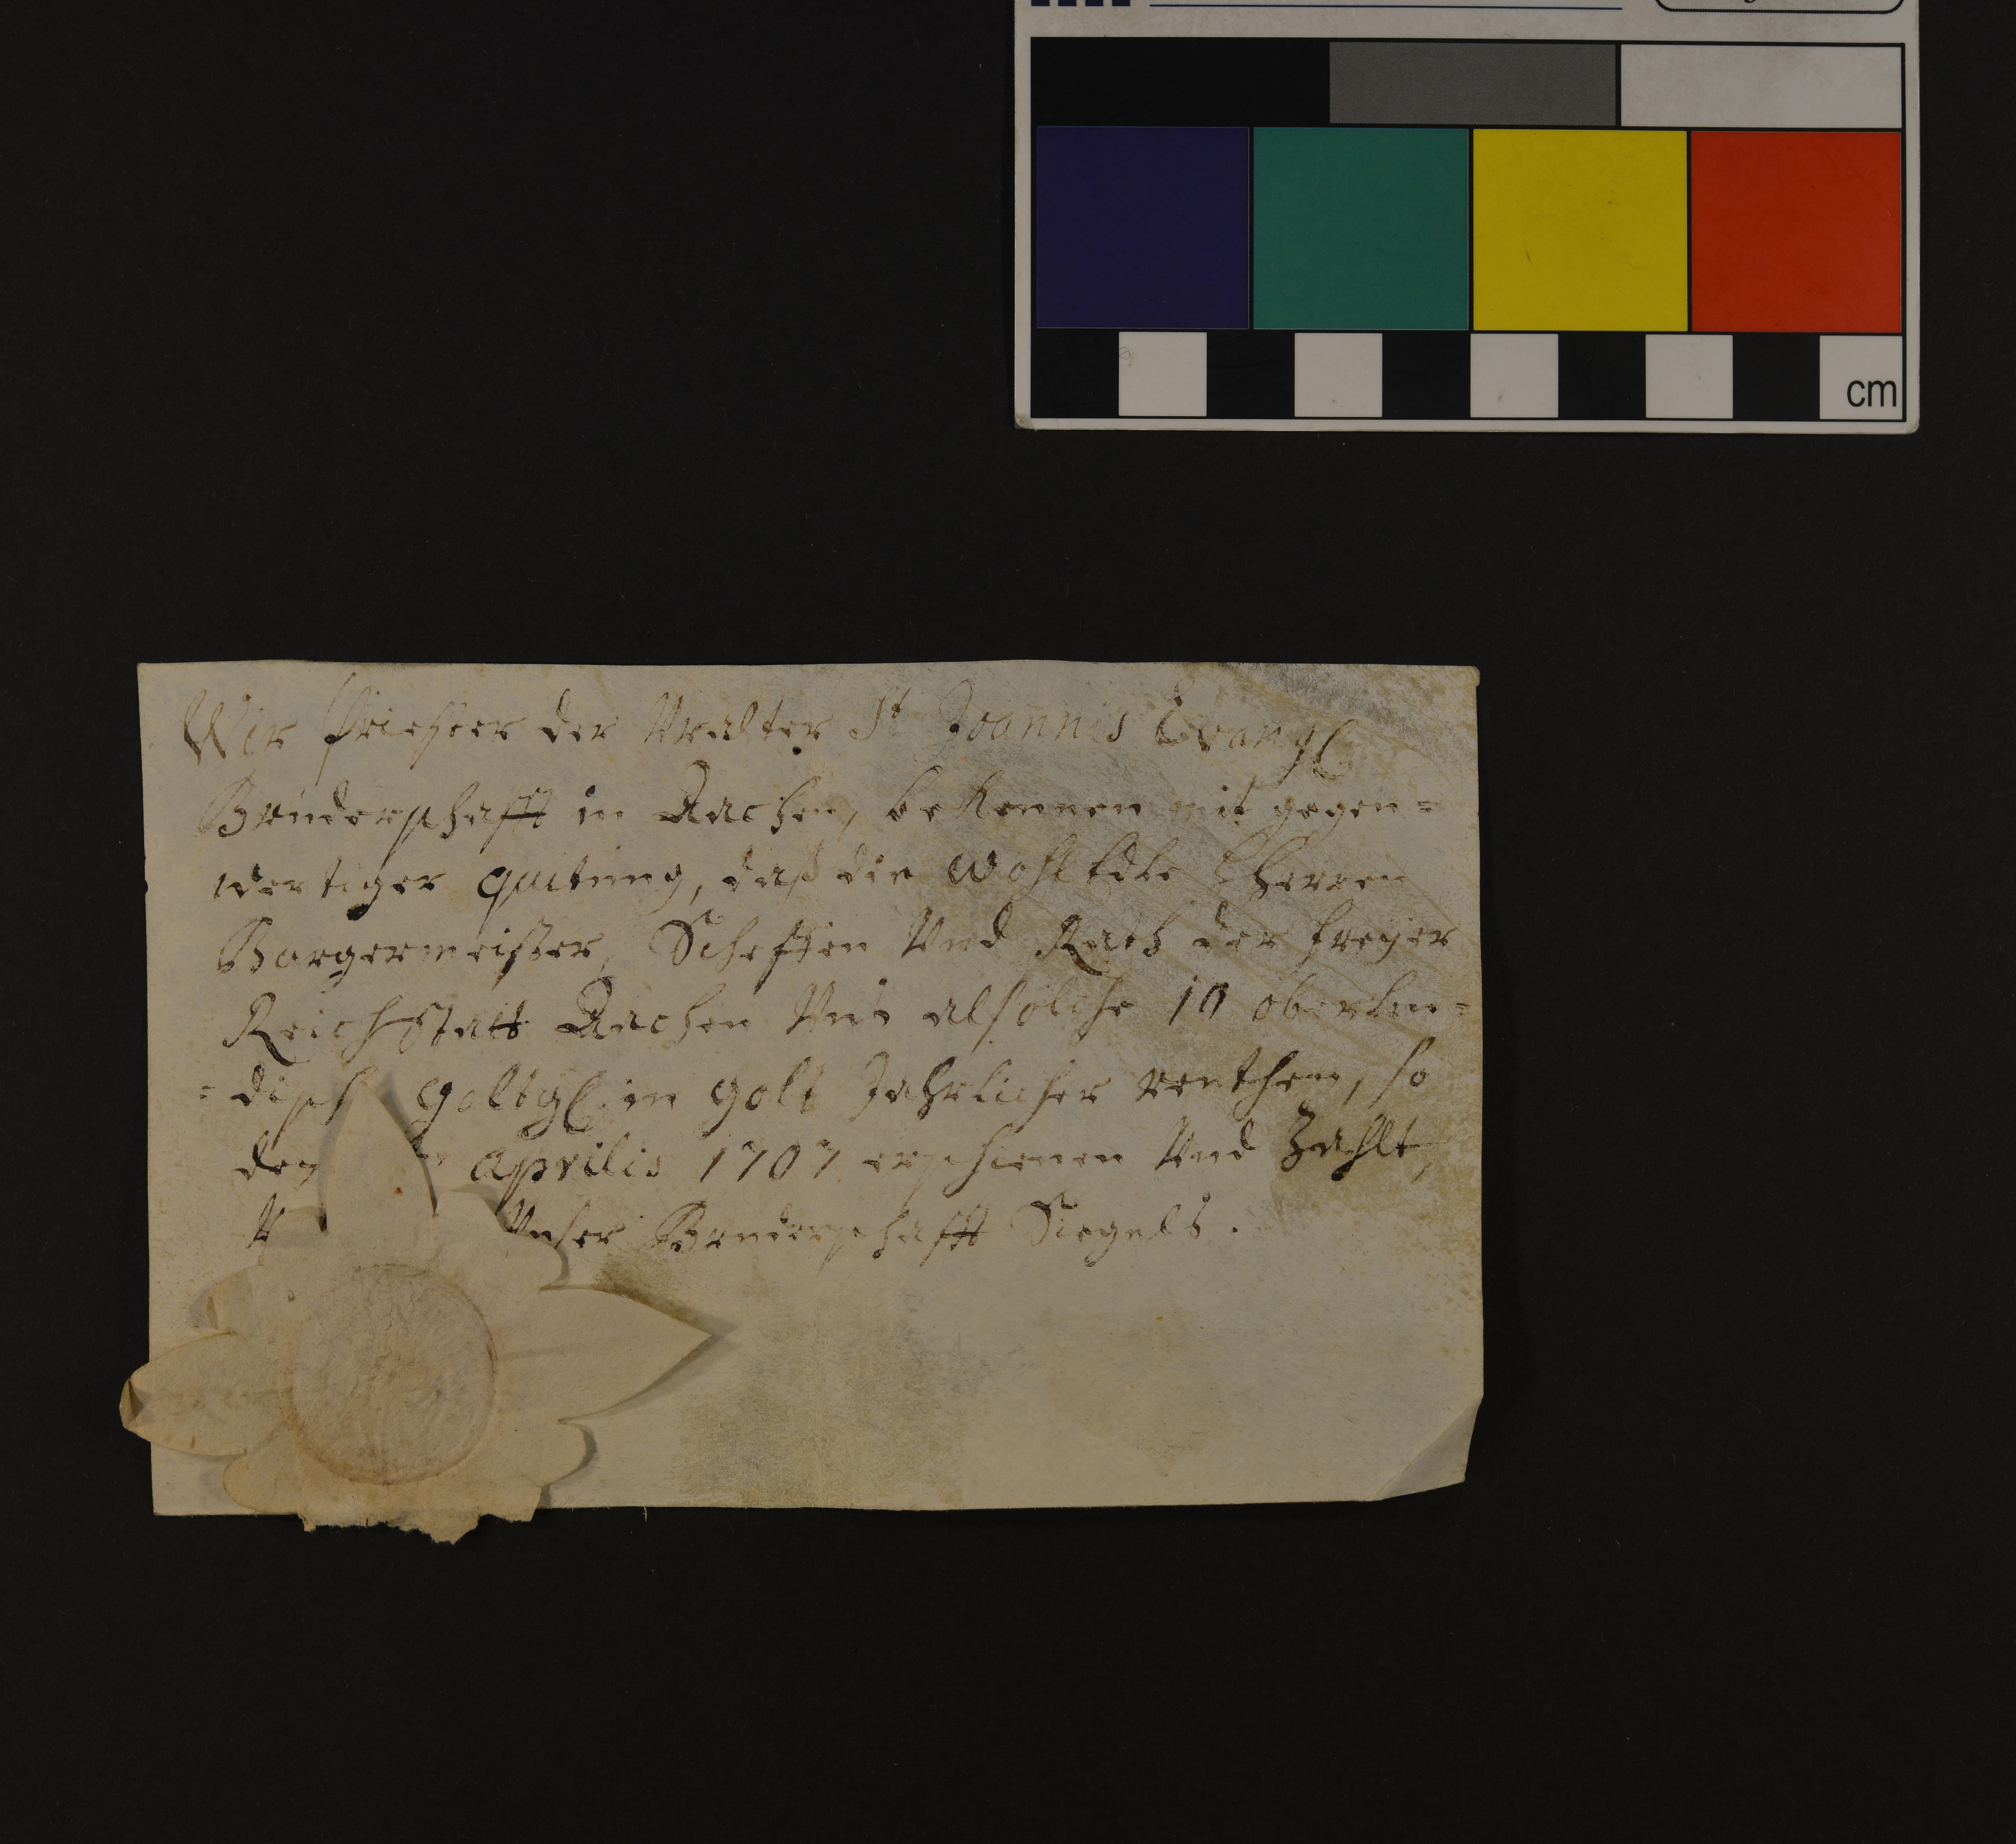 cm
Wir Priester der Uralter St Joannis Evangl
Bruderschafft in Aachen, bekennen mit gegen=
wertiger quitung, daß die WohlEdle Herren
Borgermeister, Scheffen Und Rath der freyer
ReichsStatt Aachen Uns alsolche 10 oberlen=
=disch goltgl. in golt Jahrlicher renthen, so
den Aprilis 1707 erschienen Und Zahlt,
Unser Bruderschafft Siegels.